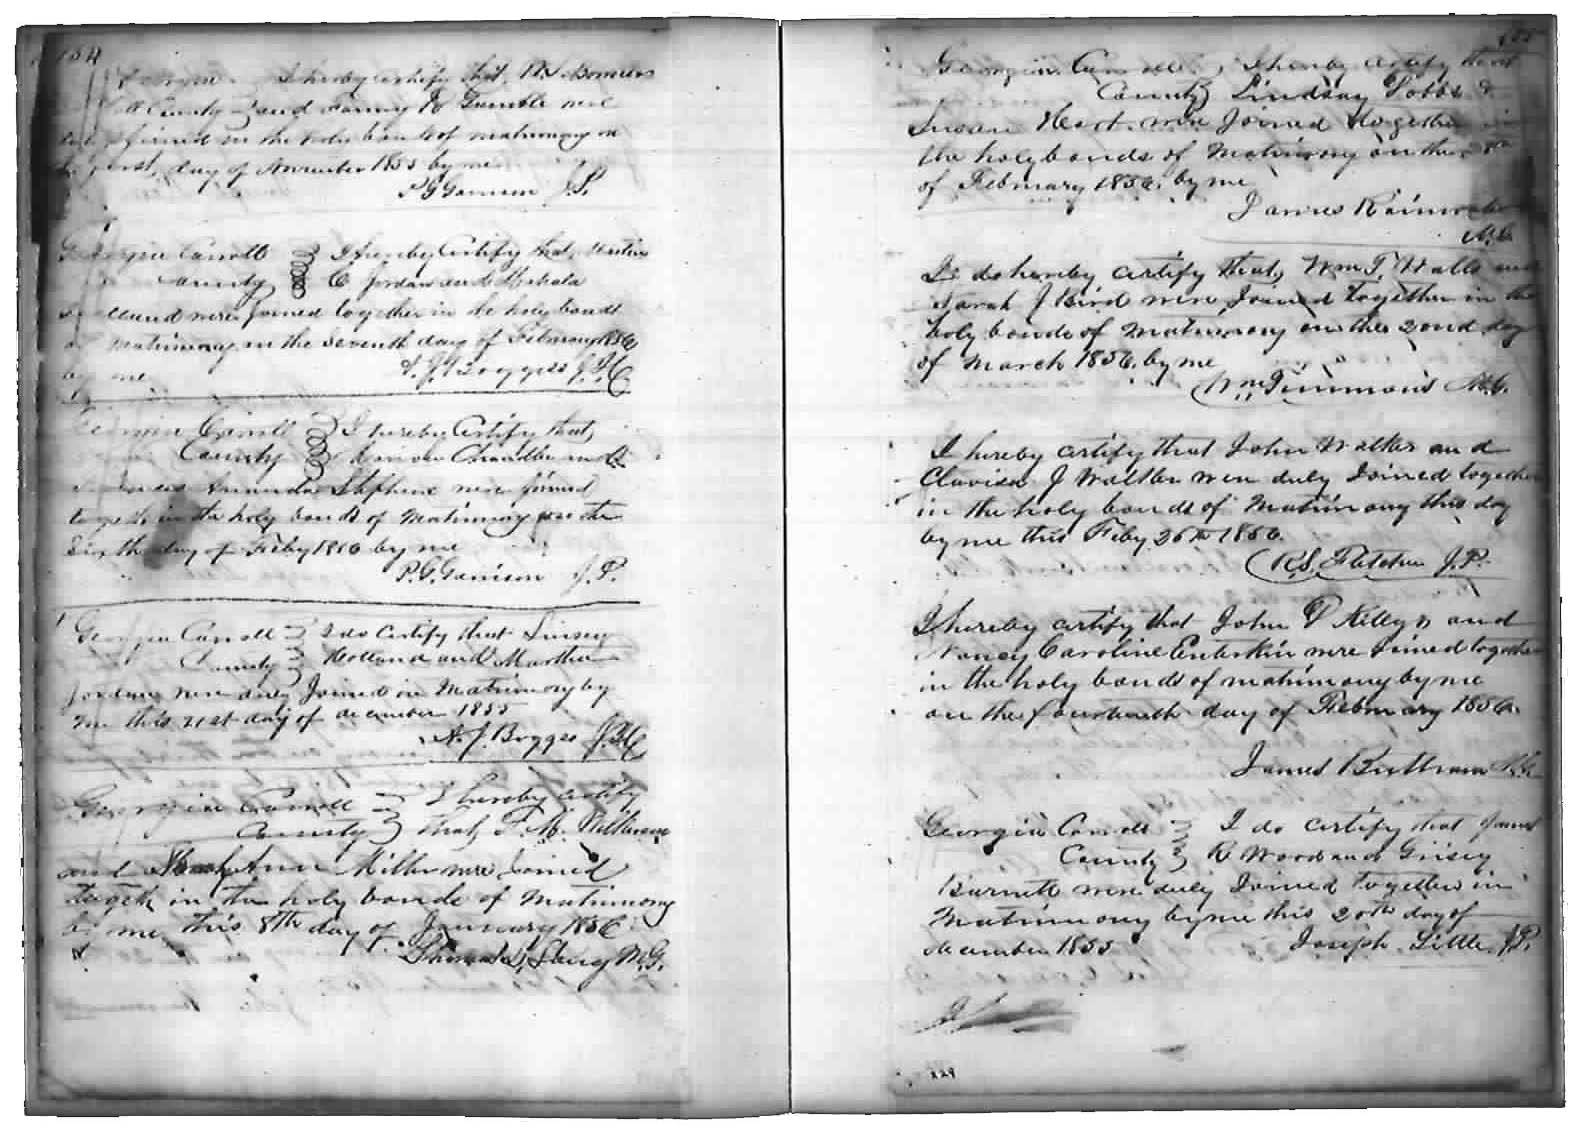 154
I hereby certify that
County and Fanny Gamble were
joined in the holy bonds of matrimony on
the first day of November 1855 by me
P G Garrison J.P.
Georgia Carroll I hereby Certify that
County C Jordan and
were Joined together in the holy bonds
of Matrimony on the Seventh day of February 1856
by me A. J. Boggess J.I.C
Carroll I hereby Certify that
County Chandler and
Amanda Stephens were joined
together in the holy bonds of Matrimony on the
Sixth day of Feby 1856 by me
P. G. Garrison J. P.
Georgia Carroll I do Certify that Linsey
County Holland and Martha
Jordan were duly Joined in Matrimony by
me this 21st day of december 1855
A. J. Boggess J.I.C
Georgia Carroll I hereby certify
County that F. M. Wilkinson
and Ann Miller were Joined
togeth in the holy bonds of Matrimony
by me this 8th day of January 1856
Thomas M.G.
155
Georgia Carroll I hereby certify that
County Lindsay Fobbs &
Susan Hart were Joined together in
the holy bonds of Matrimony on the
of February 1856. by me
James Rainwater
M.G.
I do hereby certify that Wm T. Walls and
Sarah J Bird were Joined together in the
holy bonds of Matrimony on the 2ond day
of March 1856. by me
Wm Timmons M.G.
I hereby certify that John Walker and
J Walker were duly Joined together
in the holy bonds of Matrimony this day
by me this Feby 26th 1856.
R. S. Fletcher J.P.
I hereby certify that John P Kelly and
Nancy Caroline Enterkin were Joined together
in the holy bonds of matrimony by me
on the fourteenth day of February 1856.
James Buttram M.G.
Georgia Carroll I do certify that James
County R Wood and Grisey
Burnett were duly Joined together in
Matrimony by me this 20th day of
december 1855 Joseph Little J.P.